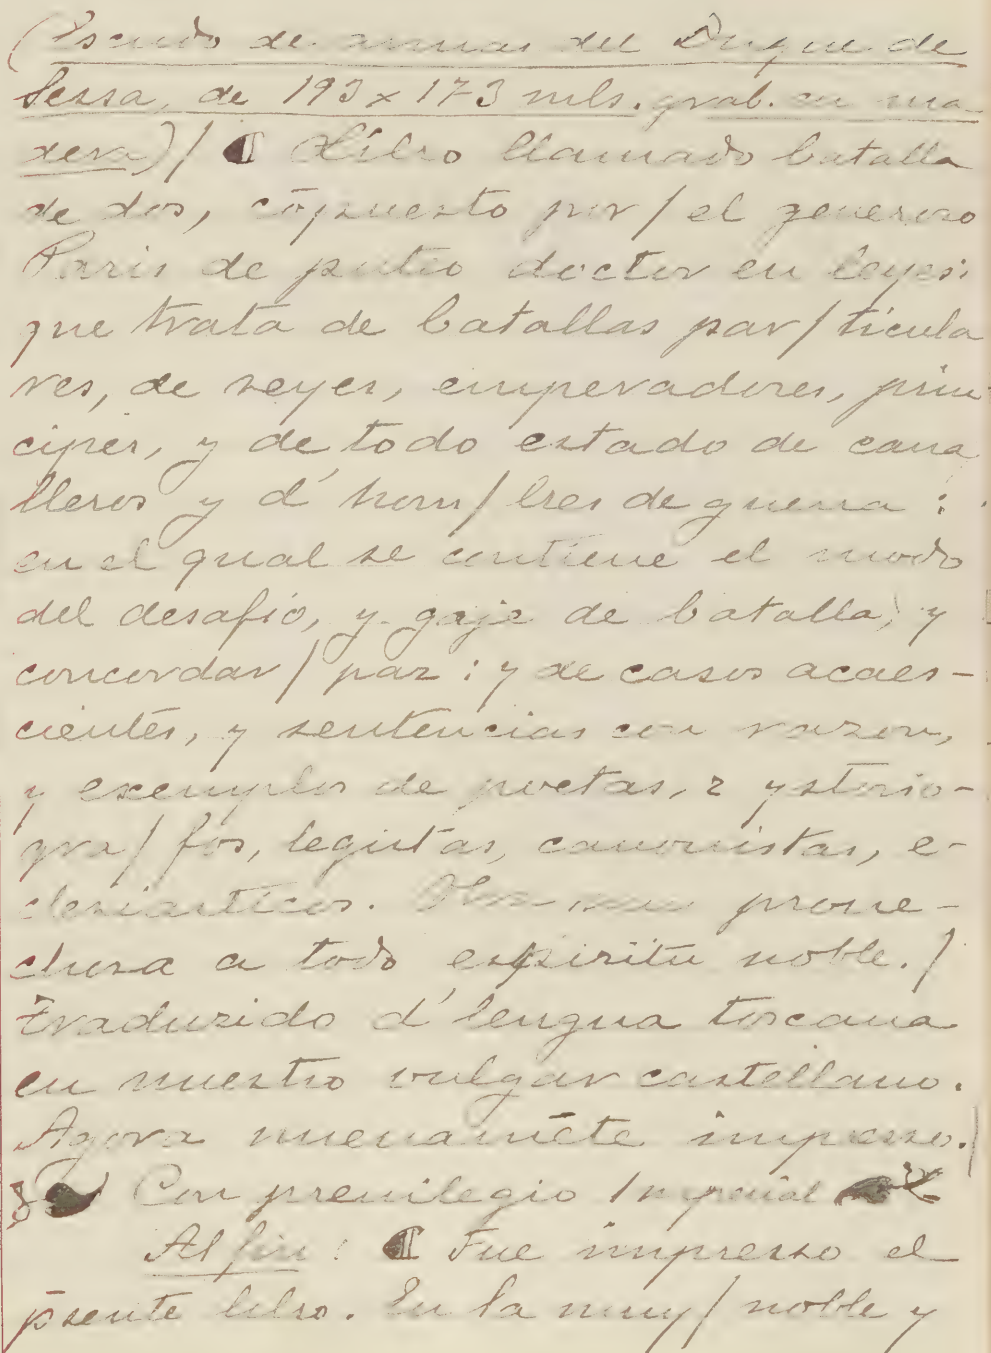 (Escudo de armas del Duque de
Sessa, de 193 x 173 mls. grab. en ma
dera) / ¶ Libro llamado batalla
de dos, cōpuesto por / el generoso
Paris de puteo doctor en leyes:
que trata de batallas par / ticula
res, de reyes, emperadores, prin-
cipes, y de todo estado de caua
lleros y d' hom / bres de guerra:
en el qual se contiene el modo
del desafio, y gaje de batalla, y
concordar / paz: y de casos acaes-
cientes, y sentencias con razon,
y exemplos de poetas, z ystorio-
gra / fos, legistas, canonistas, e-
clesiasticos. Obra proue-
chosa a todo espiritu noble. /
Traduzido d' lengua toscana
en nuestro vulgar castellano.
Agora nueuamēte impresso. /
Con preuilegio Imperial
Al fin: ¶ Fue impresso el
p̄sente libro. En la muy / noble y